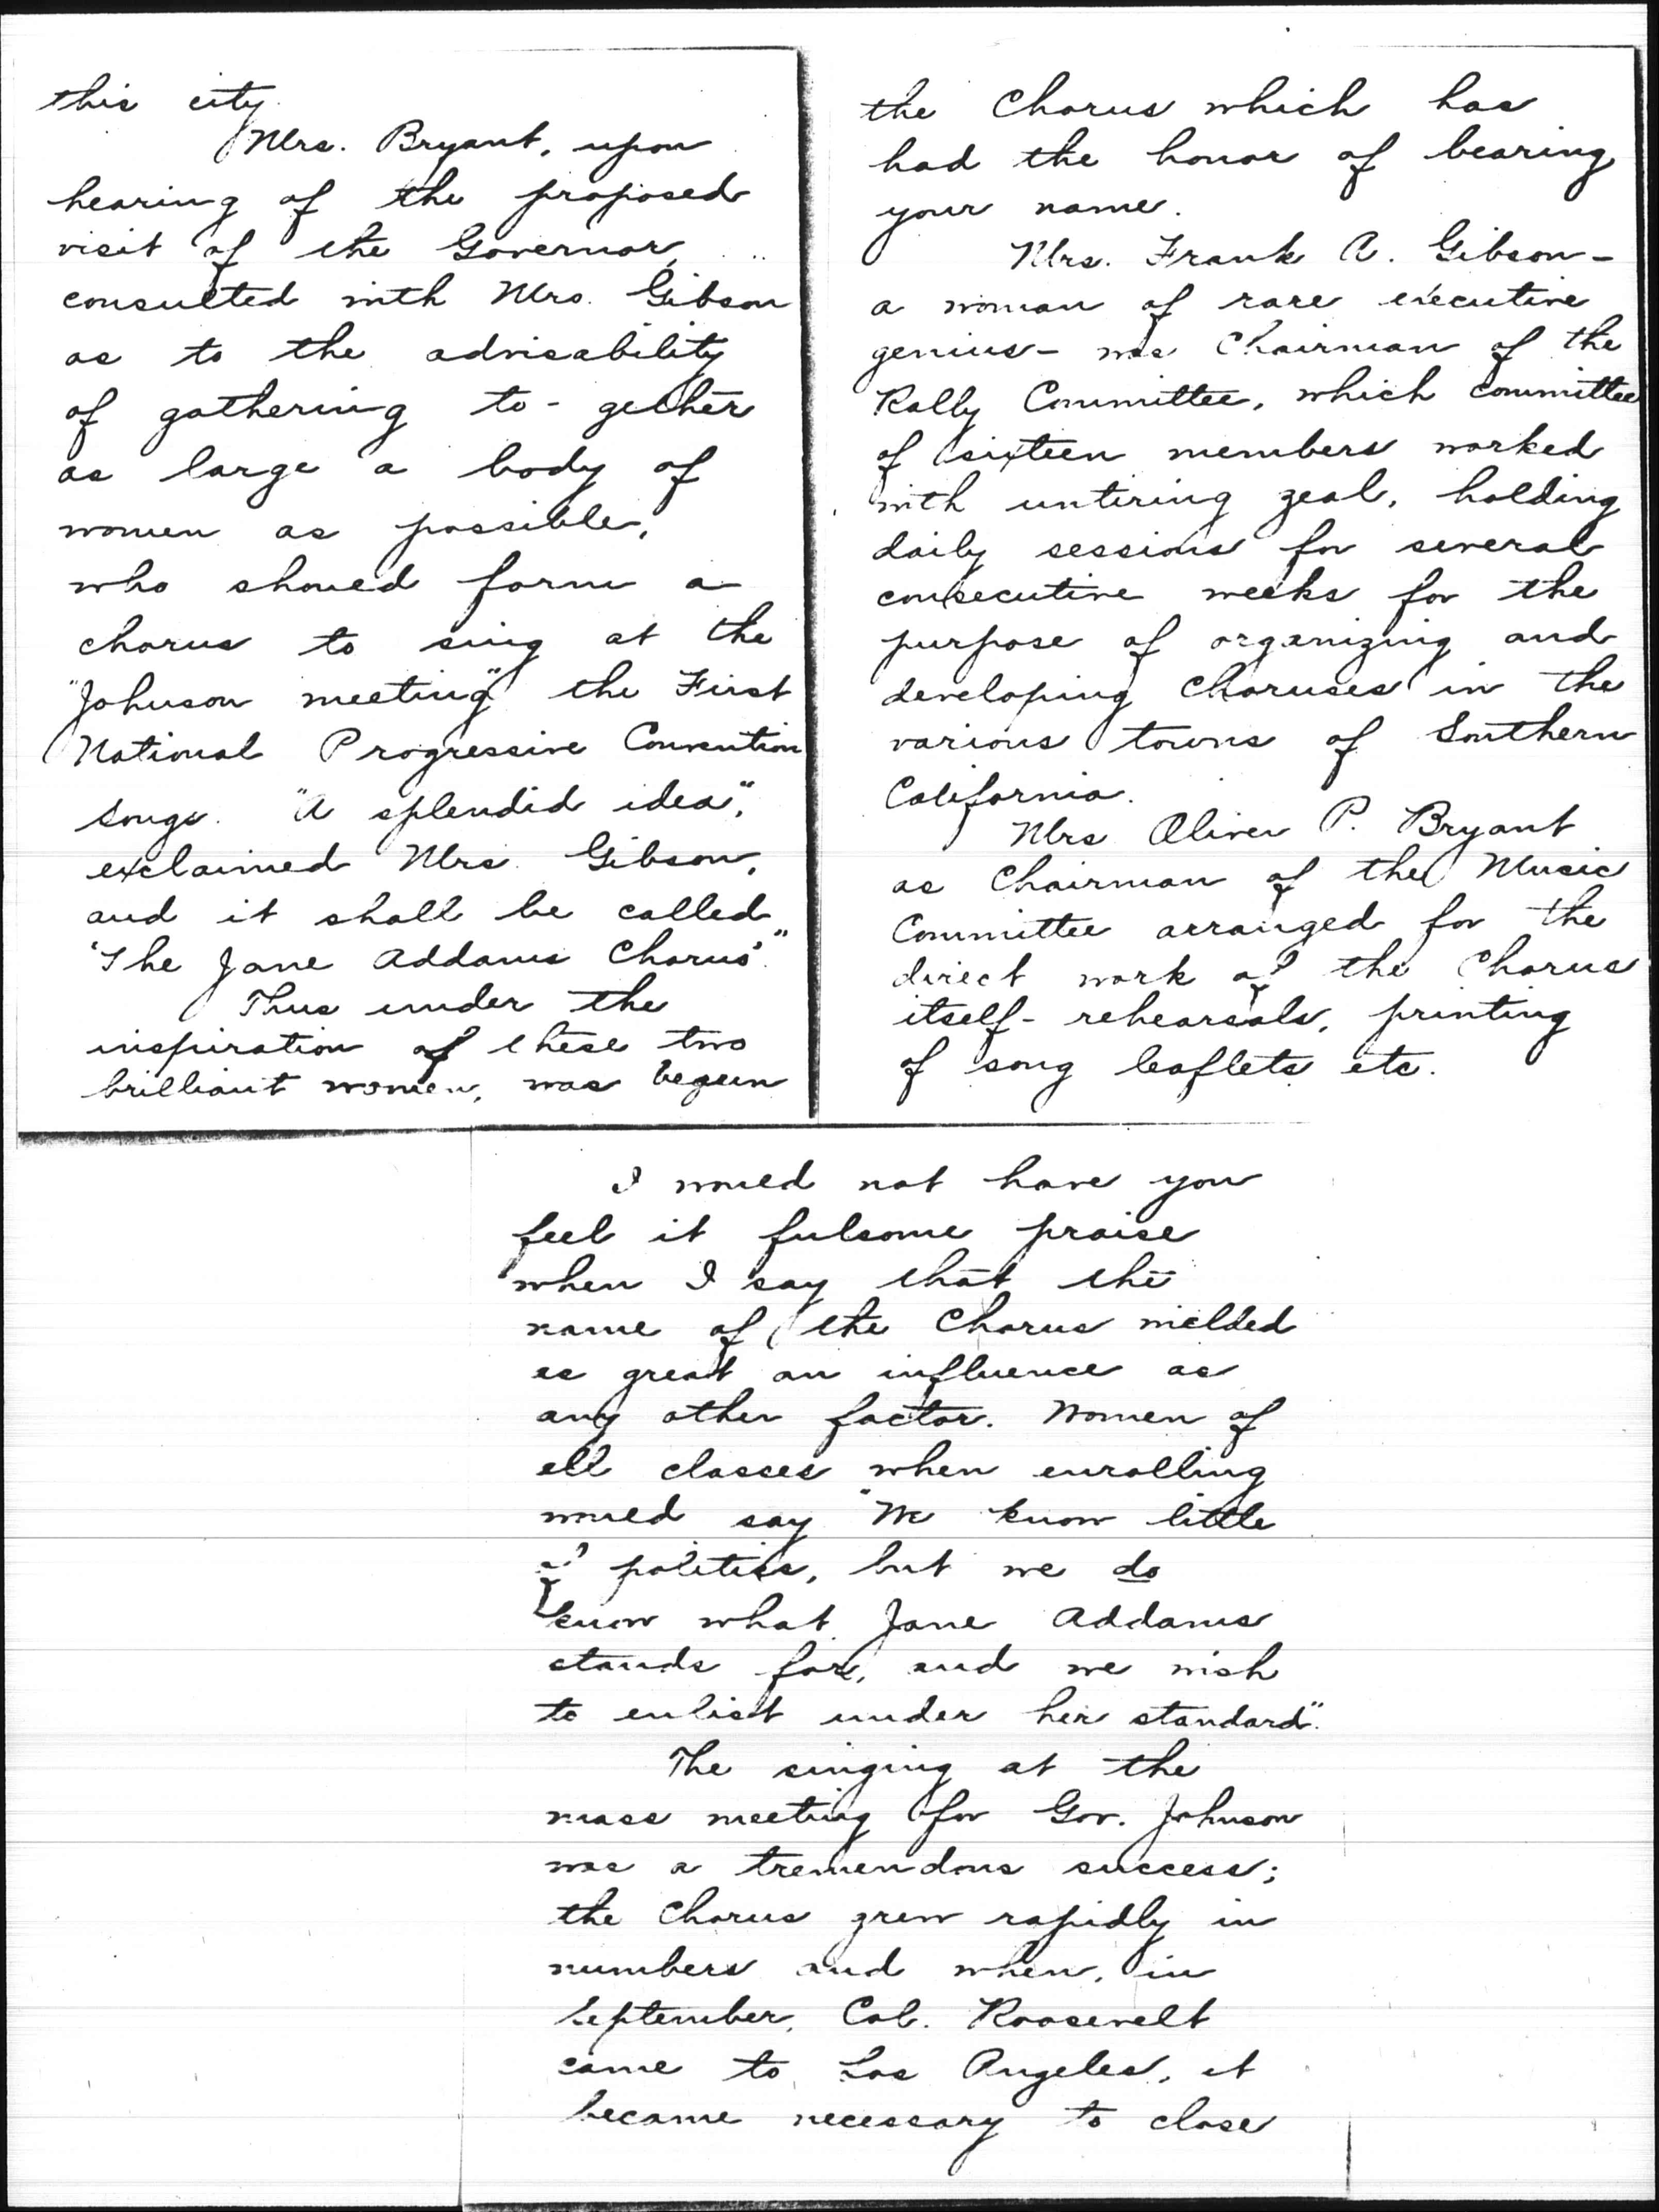 this city.
Mrs. Bryant, upon
hearing of the proposed
visit of the Governor,
consulted with Mrs. Gibson
as to the advisability
of gathering to-gether
as large a body of
women as possible,
who should form a
chorus to sing at the
"Johnson meeting" the First
National Progressive Convention
songs. "A splendid idea",
exclaimed Mrs. Gibson,
and it shall be called
'The Jane Addams Chorus'."
Thus under the
inspiration of these two
brilliant women, was begun
the Chorus which has
had the honor of bearing
your name.
Mrs. Frank A. Gibson -
a woman of rare executive
genius - was Chairman of the
Rally Committee, which committee
of sixteen members worked
with untiring zeal, holding
daily sessions for several
consecutive weeks for the
purpose of organizing and
developing Choruses in the
various towns of Southern
California.
Mrs Oliver P. Bryant
as Chairman of the Music
Committee arranged for the
direct work of the Chorus
itself - rehearsals, printing
of song leaflets etc.
I would not have you
feel it fulsome praise
when I say that the
name of the Chorus wielded
as great an influence as
any other factor. Women of
all classes when enrolling
would say "We know little
of politics, but we do
know what Jane Addams
stands for, and we wish
to enlist under her standard".
The singing at the
mass meeting for Gov. Johnson
was a tremendous success;
the Chorus grew rapidly in
numbers and when, in
September, Col. Roosevelt
came to Los Angeles, it
became necessary to close